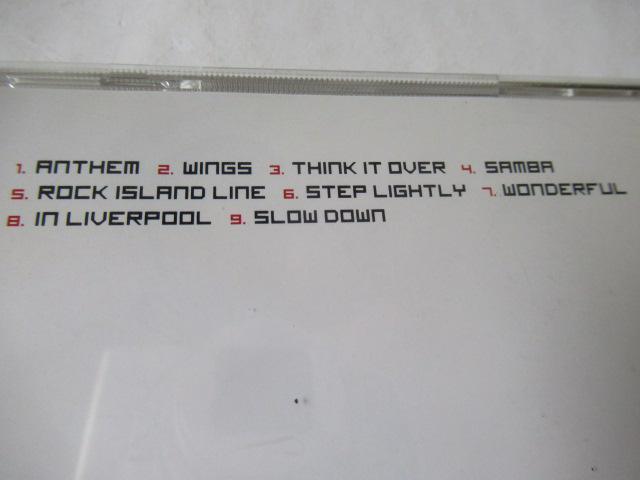 1. ANTHEM 2. WINGS 3. THINK IT OVER 4. SAMBA
5. ROCK ISLAND LINE 6. STEP LIGHTLY 7. WONDERFUL
8. IN LIVERPOOL 9. SLOW DOWN